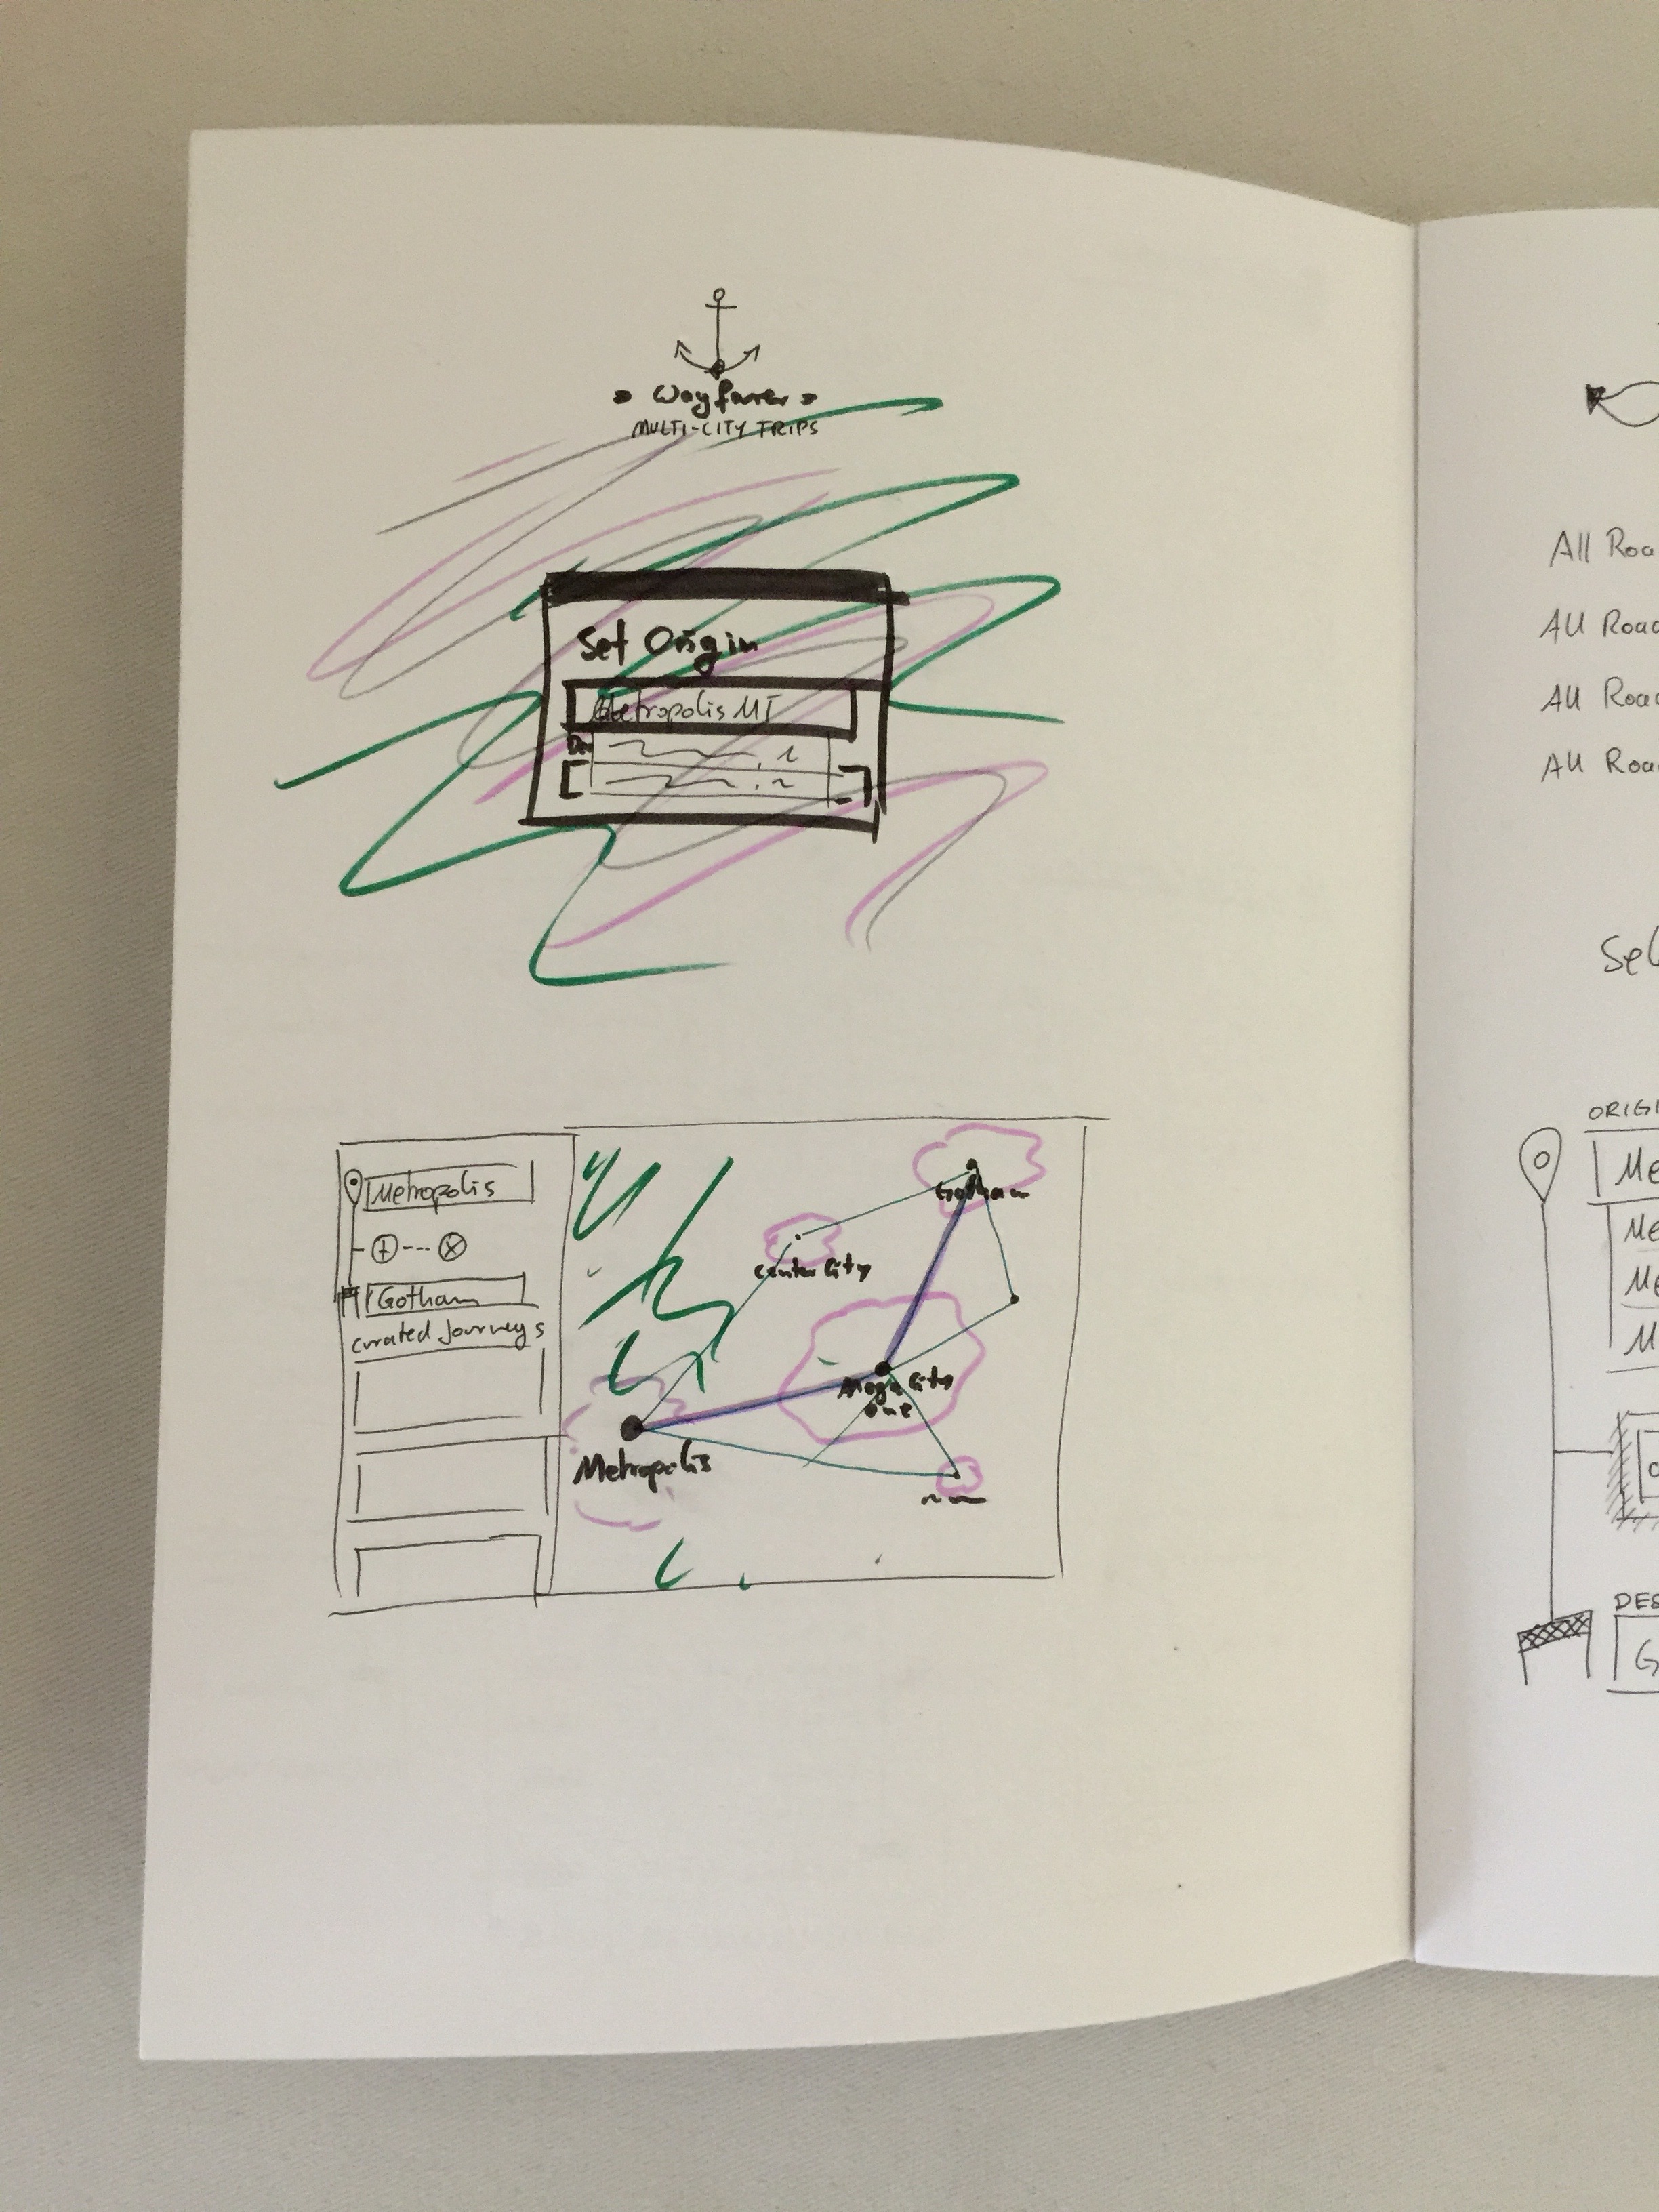 Wayfarer
MULTI-CITY TRIPS
Set Origin
Metropolis MI
Metropolis
Gotham
curated Journeys
Gotham
center City
Mega City
one
Metropolis
All Roa
All Road
All Road
All Road
Sel
ORIGI
Me
Me
Me
M
DES
G